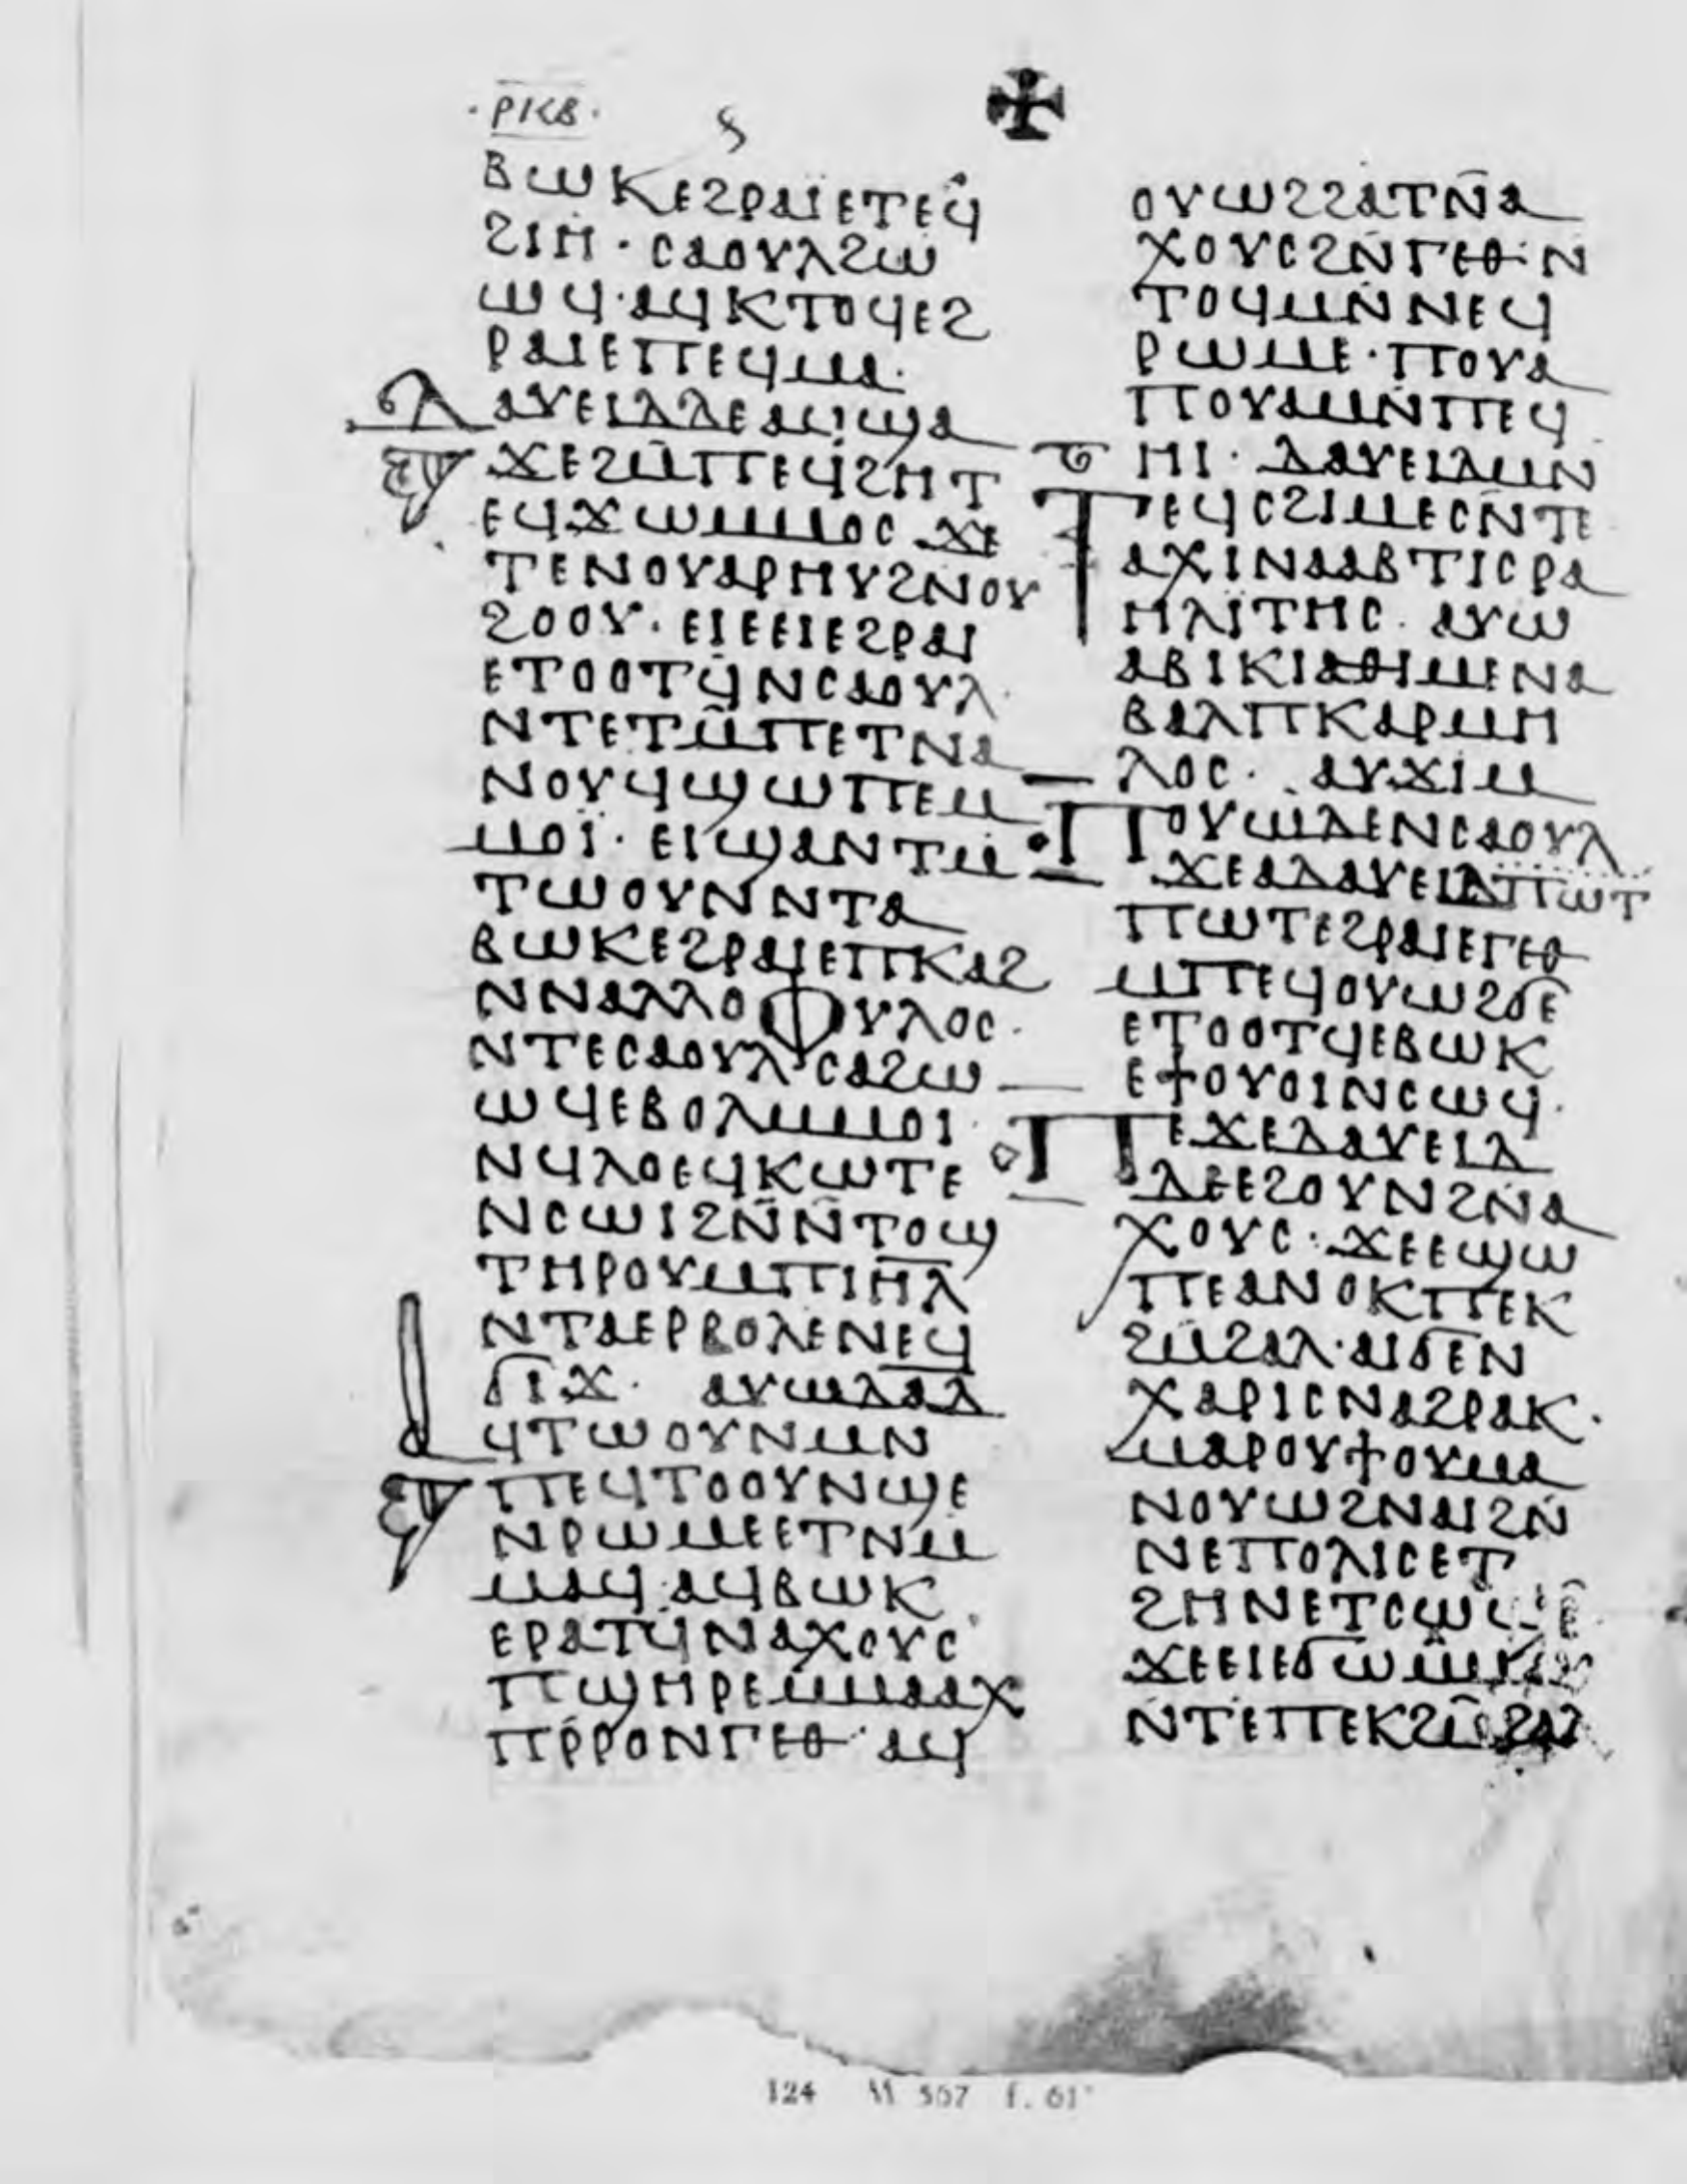 ·ⲢⲔⲂ·
ⲂⲰⲔⲈϨⲢⲀⲒ̈ⲈⲦⲈϤ
ϨⲒⲎ · ⲤⲀⲞⲨⲖϨⲰ
ⲰϤ·ⲀϤⲔⲦⲞϤⲈϨ
ⲢⲀⲒⲈⲠⲈϤⲘⲀ·
ⲆⲀⲨⲈⲒⲆⲆⲈⲀϤϢⲀ
ϪⲈϨⲘ̄ⲠⲈϤϨⲎⲦ
ⲈϤϪⲰⲘⲘⲞⲤ ϪⲈ
ⲦⲈⲚⲞⲨⲀⲢⲎⲨϨⲚⲞⲨ
ϨⲞⲞⲨ· ⲈⲒⲈⲈⲒⲈϨⲢⲀⲒ
ⲈⲦⲞⲞⲦϤ̄ⲚⲤⲀⲞⲨⲖ
ⲚⲦⲈⲦⲘ̄ⲠⲈⲦⲚⲀ
ⲚⲞⲨϤϢⲰⲠⲈⲘ
ⲘⲞⲒ̈· ⲈⲒϢⲀⲚⲦⲘ
ⲦⲰⲞⲨⲚⲚⲦⲀ
ⲂⲰⲔⲈϨⲢⲀⲒⲈⲠⲔⲀϨ
ⲚⲚⲀⲖⲖⲞⲪⲨⲖⲞⲤ·
ⲚⲦⲈⲤⲀⲞⲨⲖⲤⲀϨⲰ
ⲰϤⲈⲂⲞⲖⲘⲘⲞⲒ·
ⲚϤⲖⲞⲈϤⲔⲰⲦⲈ
ⲚⲤⲰⲒϨⲚ̄Ⲛ̄ⲦⲞϢ
ⲦⲎⲢⲞⲨⲘⲠⲒ̄Ⲏ̄Ⲗ̄
ⲚⲦⲀⲈⲢⲂⲞⲖⲈⲚⲈϤ
ϬⲒϪ· ⲀⲨⲰⲆⲀⲆ
ⲀϤⲦⲰⲞⲨⲚⲘⲚ
ⲠⲈϤⲦⲞⲞⲨⲚϢⲈ
ⲚⲢⲰⲘⲈⲈⲦⲚⲘ
ⲘⲀϤ·ⲀϤⲂⲰⲔ
ⲈⲢⲀⲦϤ̄ⲚⲀⲬⲞⲨⲤ
ⲠϢⲎⲢⲈⲘⲘⲀⲀⲬ
ⲠⲢ̄ⲢⲞⲚⲄⲈⲐ· ⲀϤ
ⲞⲨⲰϨϨⲀⲦⲚ̄Ⲁ
ⲬⲞⲨⲤϨⲚ̄ⲄⲈⲐ·Ⲛ
ⲦⲞϤⲘⲚ̀ⲚⲈϤ
ⲢⲰⲘⲈ·ⲠⲞⲨⲀ
ⲠⲞⲨⲀⲘⲚ̀ⲠⲈϤ
ⲎⲒ· ⲆⲀⲨⲈⲒⲆⲘⲚ
ⲦⲈϤⲤϨⲒⲘⲈⲤⲚ̀ⲦⲈ
ⲀⲬⲒⲚⲀⲀⲂⲦⲒⲤⲢⲀ
ⲎⲖⲒ̈ⲦⲎⲤ· ⲀⲨⲰ
ⲀⲂⲒⲔⲒⲀⲐⲒⲘⲈⲚⲀ
ⲂⲀⲖⲠⲔⲀⲢⲘⲎ
ⲖⲞⲤ· ⲀⲨϪⲒⲘ
ⲠⲞⲨⲰⲆⲈⲚⲤⲀⲞⲨⲖ
ϪⲈⲀⲆⲀⲨⲈⲒⲆⲠⲰⲦ
ⲠⲰⲦⲈϨⲢⲀⲒⲈⲄⲈⲐ
ⲘⲠⲈϤⲞⲨⲰϨϬⲈ
ⲈⲦⲞⲞⲦϤⲈⲂⲰⲔ
ⲈϮⲞⲨⲞⲒⲚⲤⲰϤ·
ⲠⲈϪⲈⲆⲀⲨⲈⲒⲆ
ⲆⲈⲈϨⲞⲨⲚϨⲚ̀Ⲁ
ⲬⲞⲨⲤ·ϪⲈⲈϢⲰ
ⲠⲈⲀⲚⲞⲔⲠⲈⲔ
ϨⲘ̄ϨⲀⲖ·ⲀⲒϬⲈⲚ
ⲬⲀⲢⲒⲤⲚⲀϨⲢⲀⲔ·
ⲘⲀⲢⲞⲨϮⲞⲨⲘⲀ
ⲚⲞⲨⲰϨⲚⲀⲒϨⲚ̀
ⲚⲈⲠⲞⲖⲒⲤⲈⲦ
ϨⲎⲚⲈⲦⲤⲰϢⲈ
ϪⲈⲈⲒⲈϬⲰⲘ̄
ⲚⲦⲈⲠⲈⲔϨⲘ̄ϨⲀⲖ
124 M 567 f. 61ᵛ